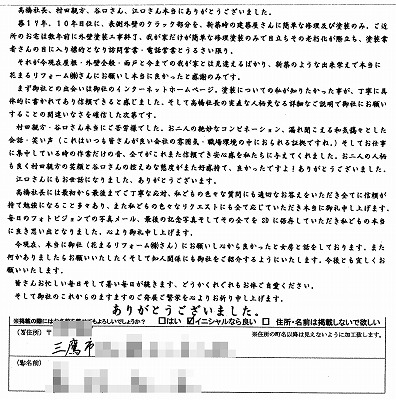 高橋社長、村田親方、谷口さん、江口さん本当にありがとうございました。
築17年、10年目位に、表側外壁のクラック部分を、新築時の建築屋さんに簡単な修理及び塗装のみ、ご近
所のお宅は数年前に外壁塗装工事終了、我が家だけが簡単な修理塗装のみで目立ちその老朽化が際立ち、塗装業
者さんの目に入り標的となり訪問営業・電話営業とうるさい限り。
それが今現在屋根・外壁全般・雨戸と今までの我が家とは見違えるばかり、新築のような出来栄えで本当に
花まるリフォーム㈱さんにお願いし本当に良かったと感謝のみです。
まず御社との出会いは御社のインターネットホームページ。塗装についての私が知りたかった事が、丁寧に具
体的に書かれており信頼できると感じました。そして高橋社長の実直な人柄見える詳細なご説明で御社にお願い
することの間違いなさを確信した次第です。
村田親方・谷口さん本当にご苦労様でした。お二人の絶妙なコンビネーション、漏れ聞こえる和気藹々とした
会話・笑い声（これはいつも皆さんが良い会社の雰囲気・職場環境の中におられる証拠ですね。）そしてお仕事
に集中している時の作業だけの音、全てがこれまた信頼でき安心感を私たちに与えてくれました。お二人の人柄
も良く村田親方の笑顔と谷口さんの控えめな態度がまた好感持て、良かったですよ！ありがとうございました。
江口さんにもお世話になりました、ありがとうございます。
高橋社長には最初から最後までご丁寧な応対、私どもの色々な質問にも適切なお答えをいただき全てに信頼が
持て勉強になること多々あり、また私どもの色々なリクエストにも全て応じていただき本当に御礼申し上げます。
毎日のフォトビジョンでの写真メール、最後の記念写真そしてその全てをSDに保存していただき私どもの本当
に良き思い出となりました。心より御礼申し上げます。
今現在、本当に御社（花まるリフォーム㈱さん）にお願いし心から良かったと女房と話をしております。また
何かありましたらお願いいたしたくそして知人関係にも御社をご紹介するようにいたします。今後とも宜しくお
願いいたします。
皆さんお忙しい毎日そして暑い毎日が続きます、どうかくれぐれもお体ご自愛ください。
そして御社のこれからのますますのご発展ご繁栄を心よりお祈り申し上げます。
ありがとうございました。
□はい ☑イニシャルなら良い □住所・名前は掲載しないで欲しい
（ご住所） ※住所の町名以降は見えないように加工致します。
三鷹市
（お名前）